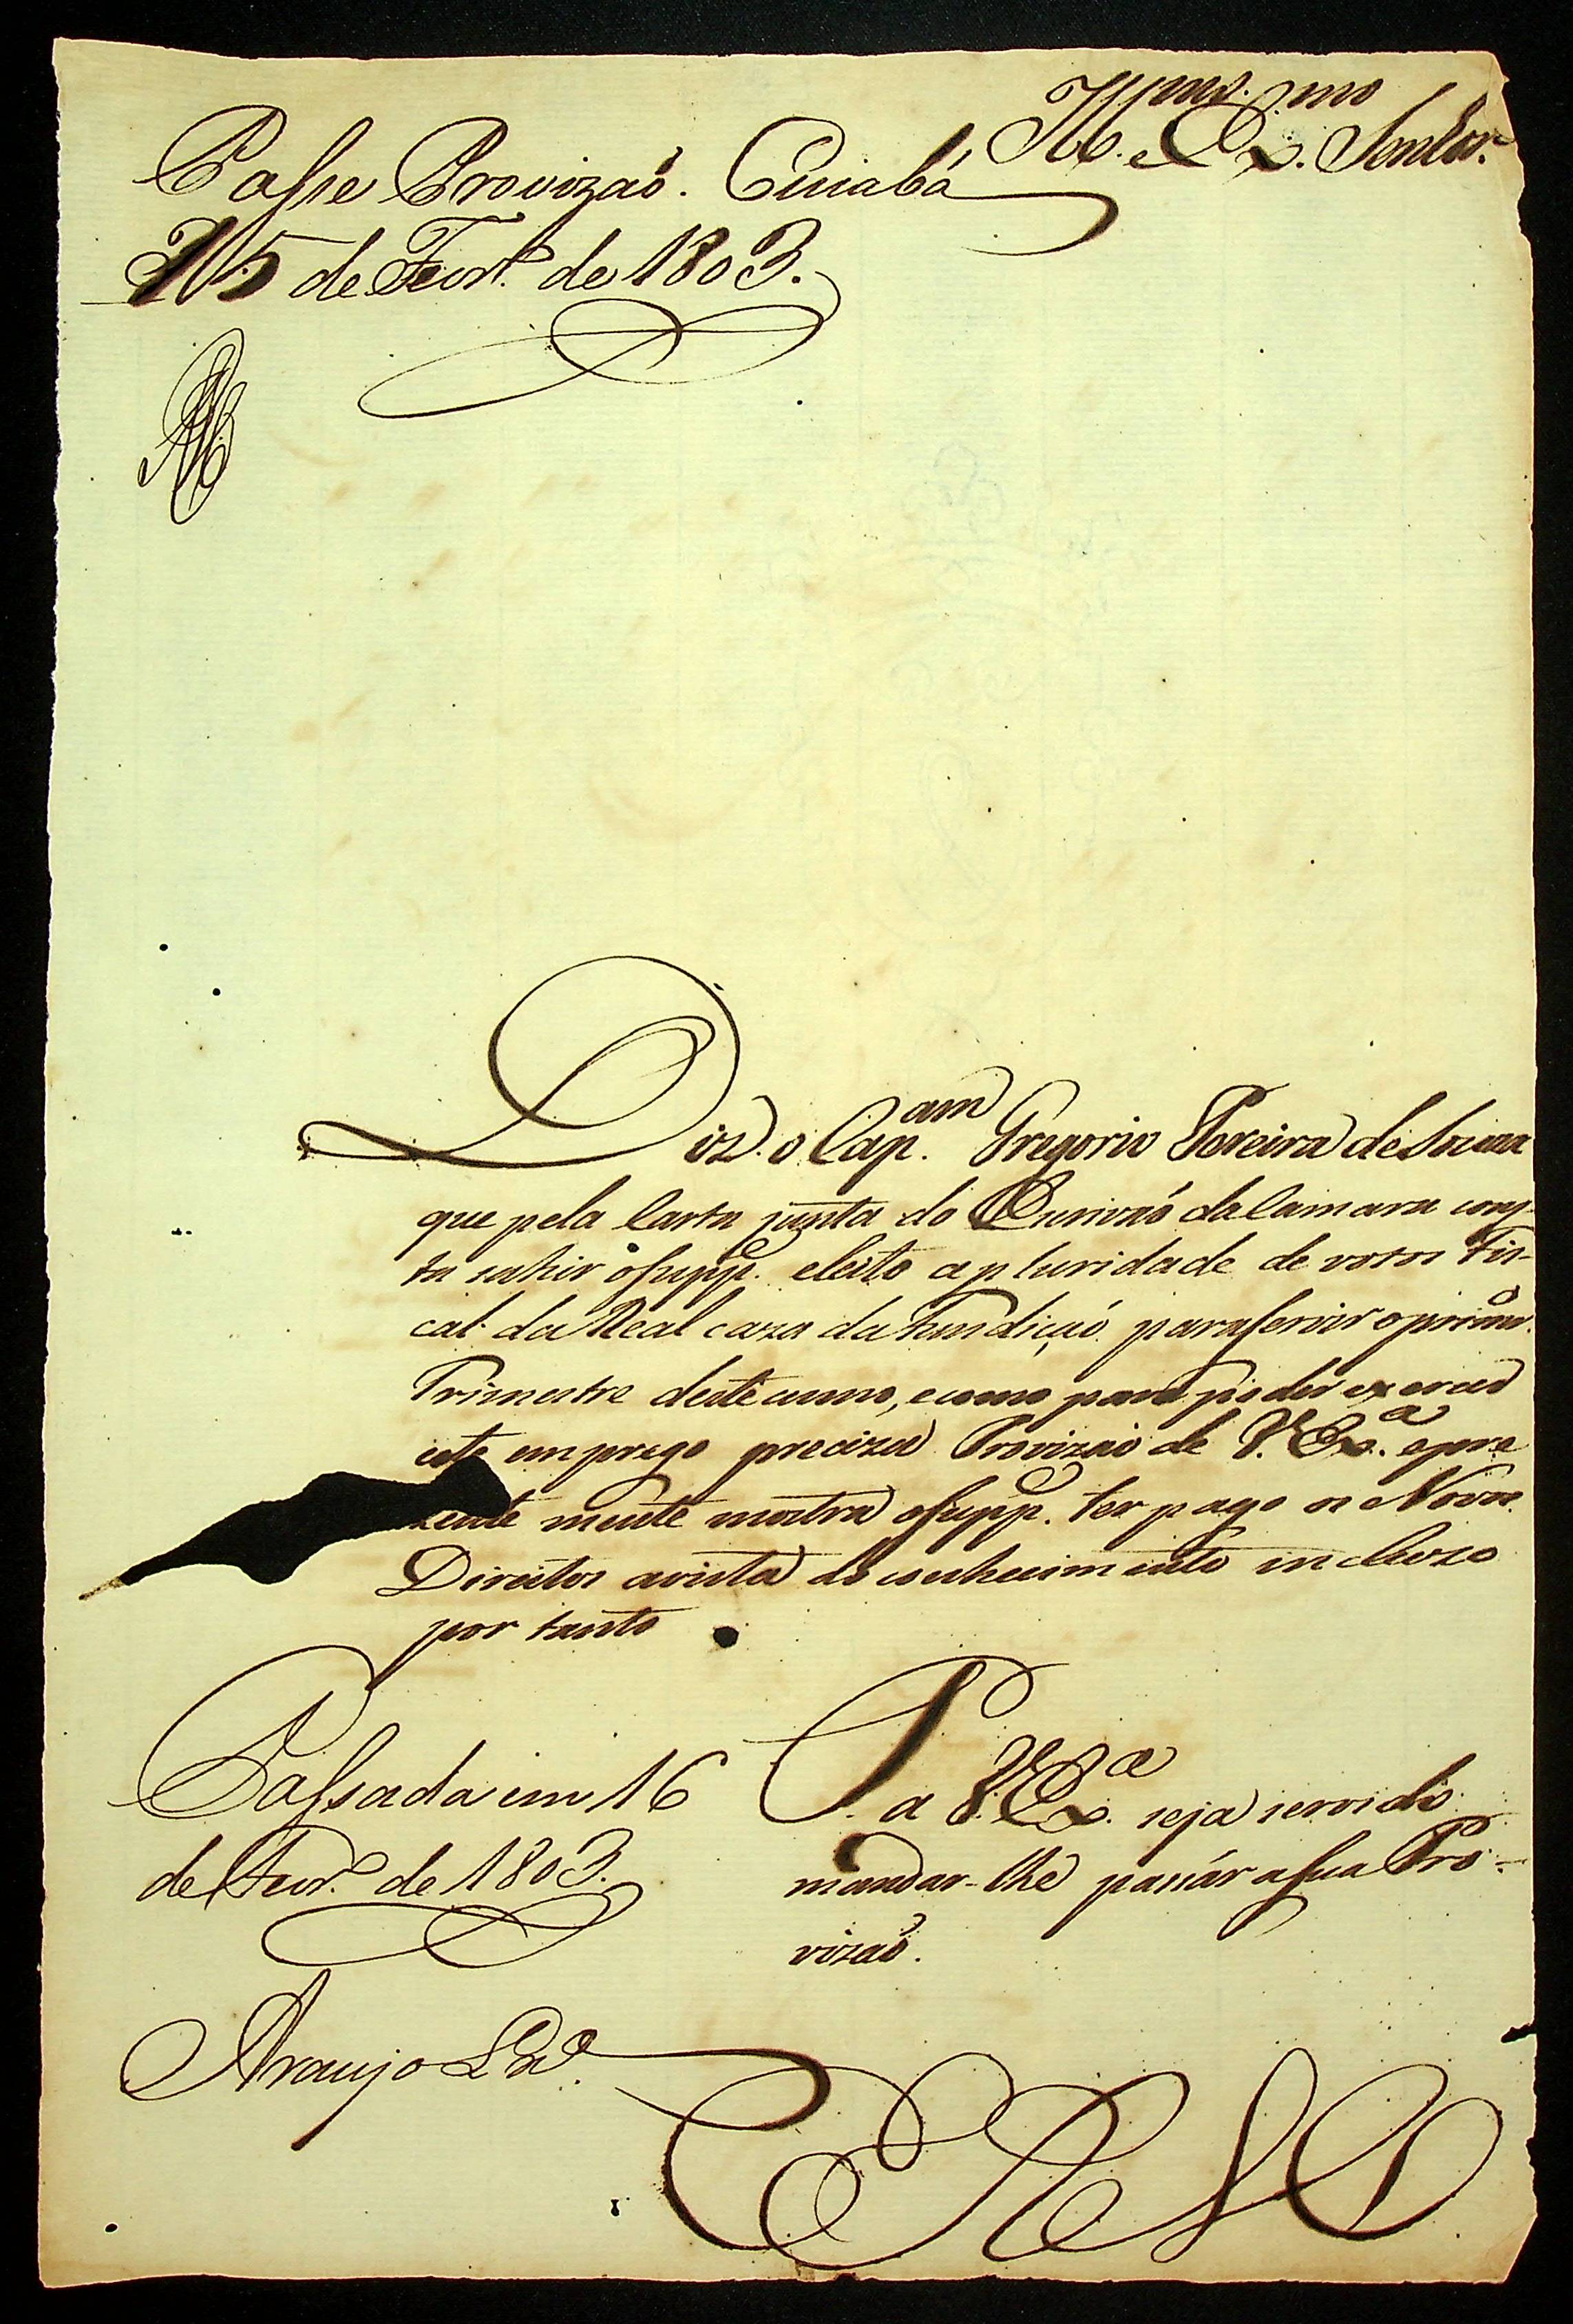 Ill.mo e Ex.mo Senhor.
Passe Provizaó. Cuiabá
15 de Fevr.o de 1803.
Diz o Cap.am Gregorio Pereira de Souza
que pela Carta junta do Escrivaó da Camara cons-
ta sahir o supp.e eleito a pluridade de votos Fis-
cal da Real caza da Fundiçaó para servir o prim.o
Trimestre deste anno, e como para poder exercer
este emprego preciza Provizaó de V. Ex.a e pre
zente mente mostra o supp.e ter pago os Novos
Direitos avista do conhecimento incluzo
por tanto
P. a V. Ex.a seja servido
mandar-lhe passár a sua Pro-
vizaó.
Passada em 16
de Fevr.o de 1803.
Araujo
E R M